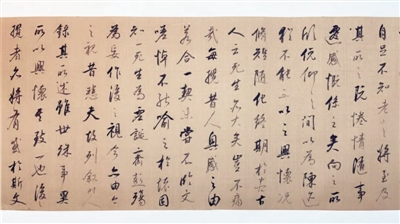 自足不知老之將至及
其所之既惓情隨事
遷感慨係之矣向之所
欣俛仰之間以為陳迹
猶不能不以之興懷況
脩短隨化終期於盡古
人云死生亦大矣豈不痛
哉每攬昔人興感之由
若合一契未嘗不臨文
嗟悼不能喻之於懷固
知一死生為虛誕齊彭殤
為妄作後之視今亦由今
之視昔悲夫故列敘時人
錄其所述雖世殊事異
所以興懷其致一也後之
攬者亦將有感於斯文